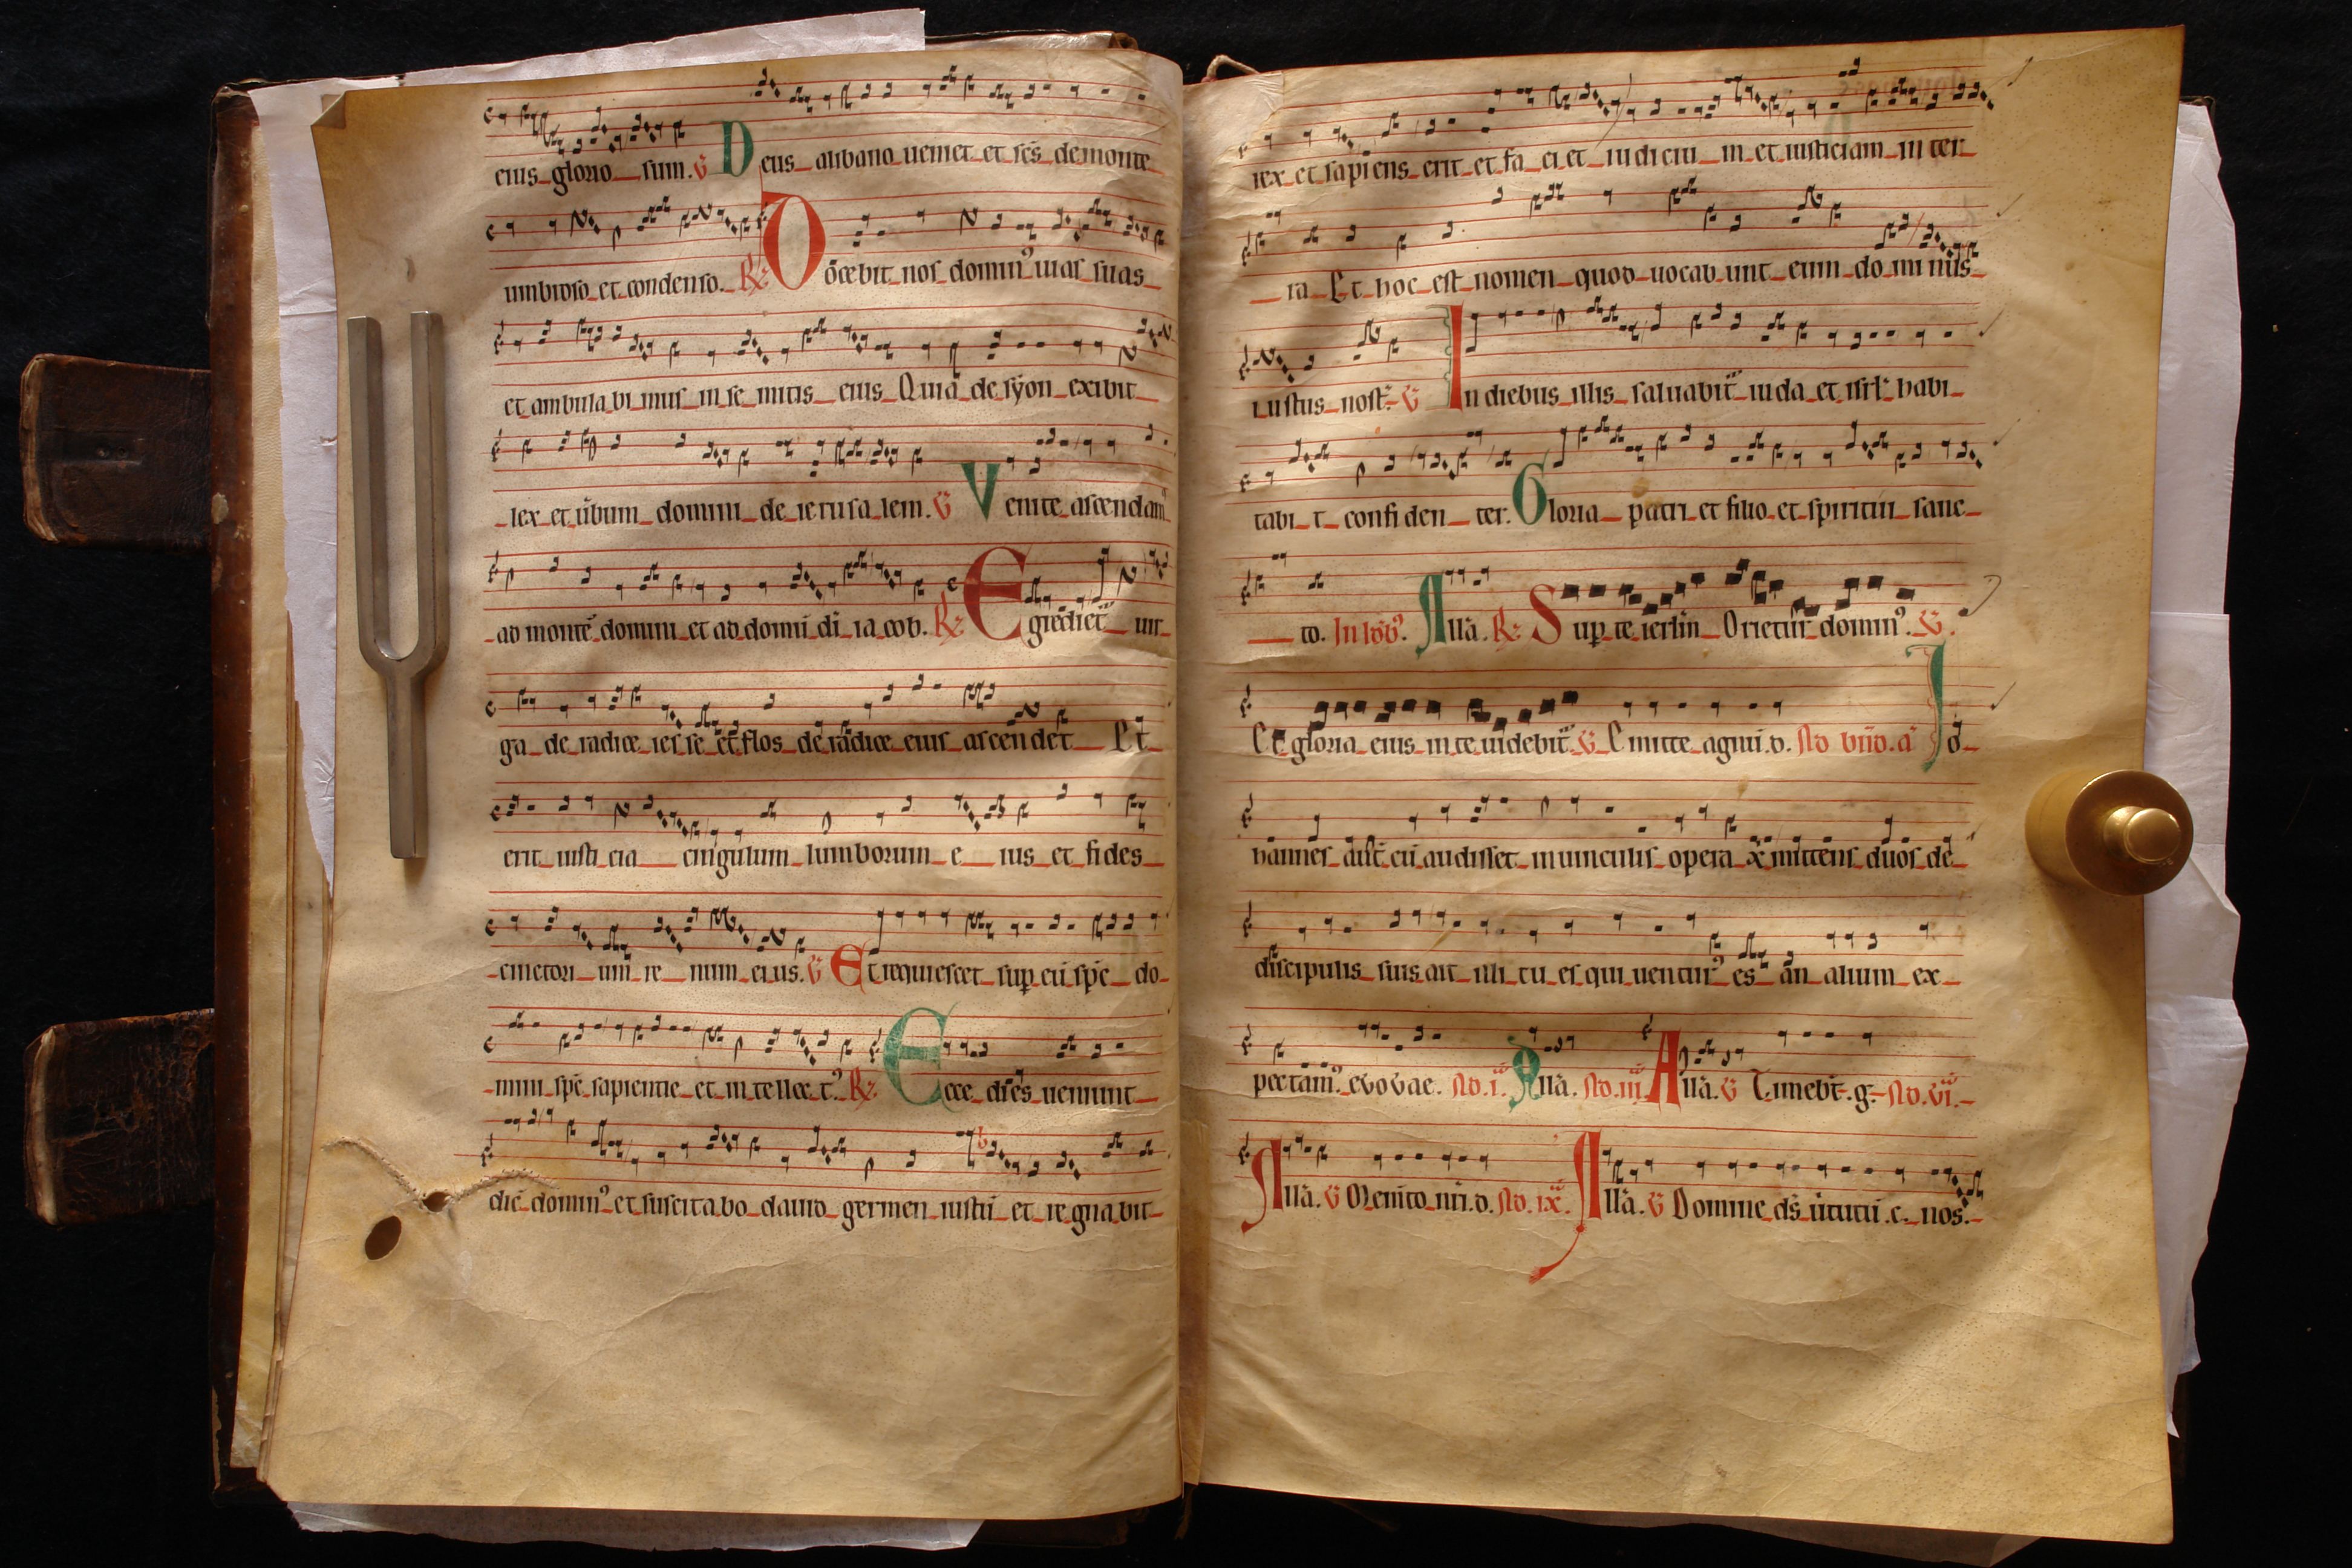 eius glorio sum. V Deus alibano ueniet et scs demonte
umbroso et condenso. R Docebit nos domin9 uias suas
et ambula bi mus in se mitis eius Quia de syon exibit
lex et ubum domini de ierusa lem. V Venite ascendam9
ad monte domini et ad domu di ia cob. R Egrediet uir
ga de radice ies se et flos de radice eius ascen det Et
erit iusti cia cingulum lumborum e ius et fides
cinctori um re num ei us. V Et requiescet sup eu spc do
mini spc sapientie et in tellec t9 R Ecce dies ueniunt
dic domin9 et suscita bo dauid germen iustu et re gna bit
rex et sapiens erit et fa ci et iu diciu m et iusticiam in ter
ra Et hoc est nomen quod uocab unt eum do mi nus
iustus nost. V In diebus illis saluabit iuda et isrl habi
tabi t confi den ter. Gloria patri et filio et spiritui sanc
to. In Alla. R Sup te ierlm Orietur domin9. V
Et gloria eius in te uidebit V Emitte agnu. d. Ad bnd. a Jo
hannes aut cu audisset in uinculis opera x mittens duos de
discipulis suis ait illi tu es qui uentur9 es an alium ex
pectam9 evovae. Ad .i. Alla. Ad .iii. Alla. V Timebt. g. Ad. vi.
Alla. V Memto nri. d. Ad. ix. Alla. V Domine ds ututu .c. nos.